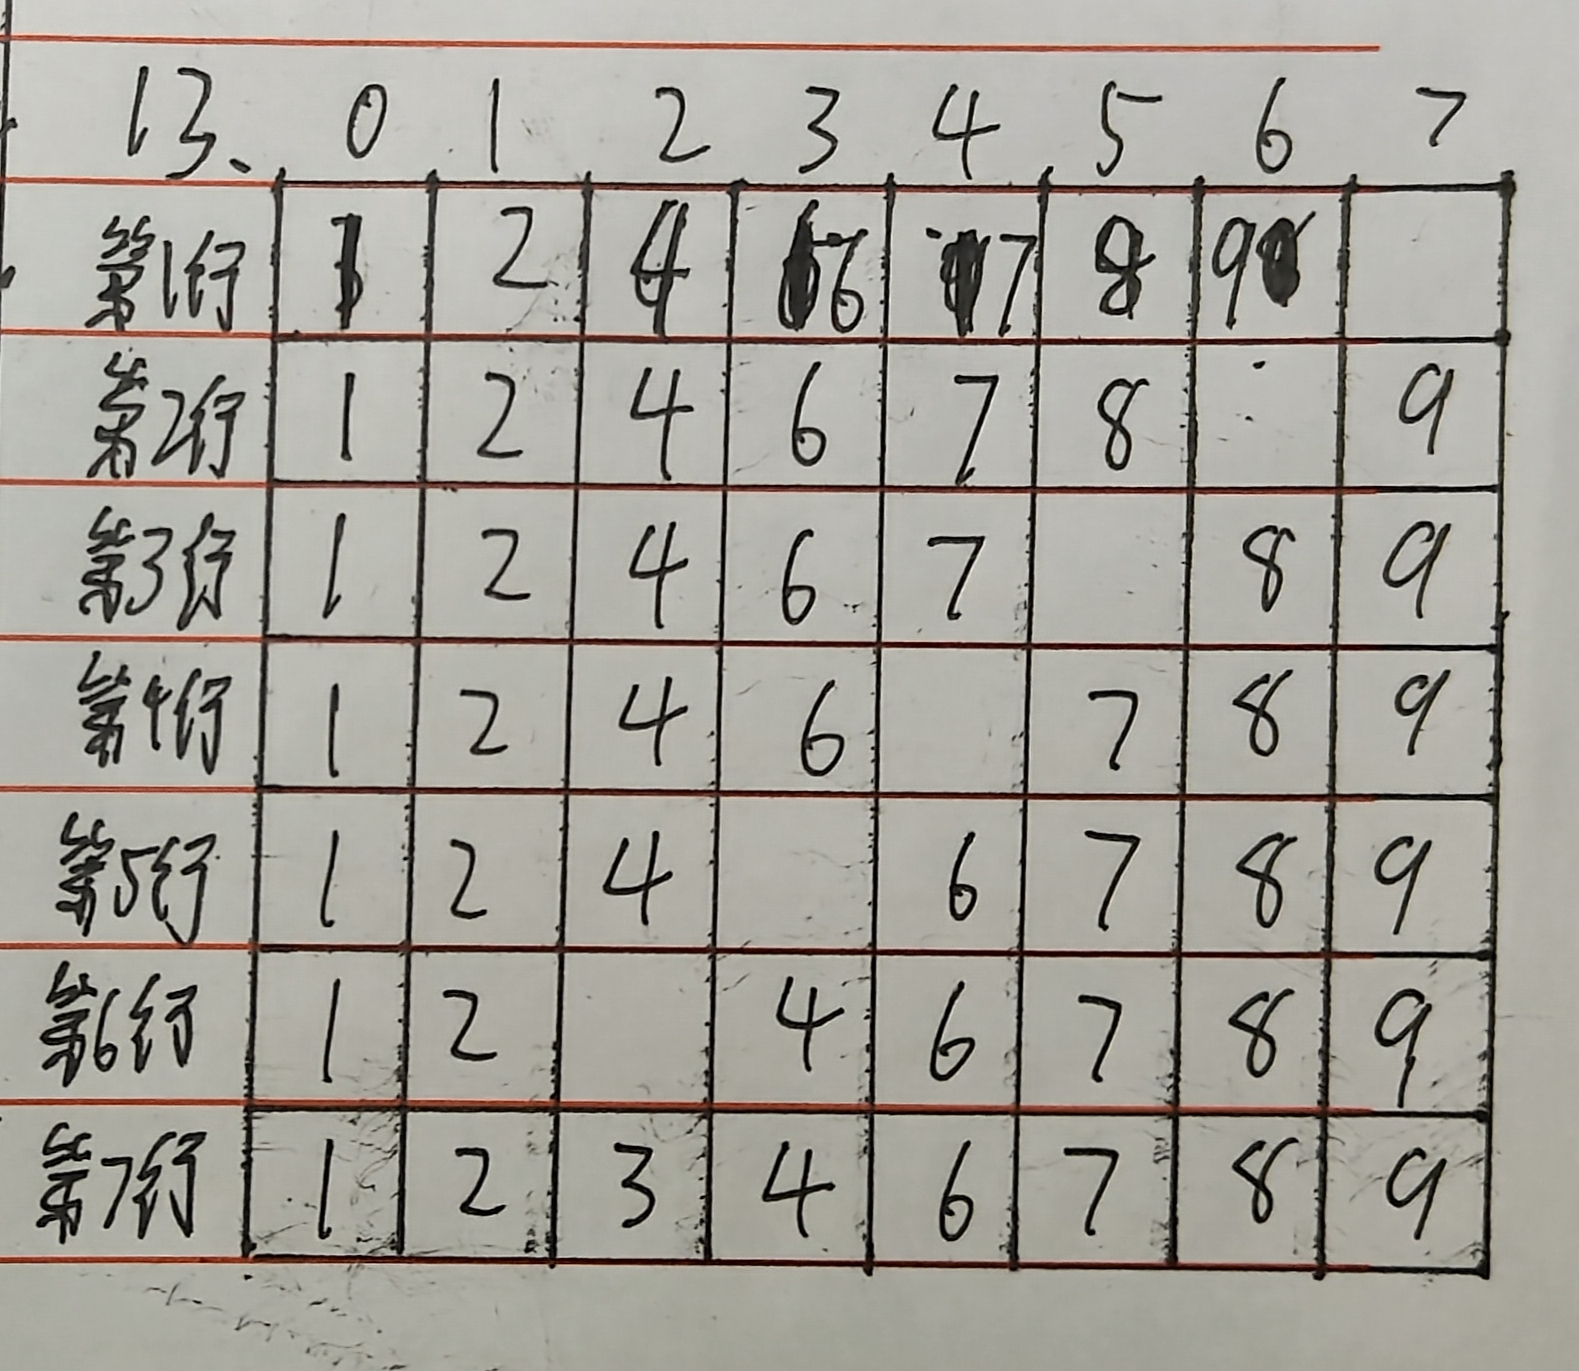 13、 0 1 2 3 4 5 6 7
第1行 1 2 4 6 7 8 9
第2行 1 2 4 6 7 8 9
第3行 1 2 4 6 7 8 9
第4行 1 2 4 6 7 8 9
第5行 1 2 4 6 7 8 9
第6行 1 2 4 6 7 8 9
第7行 1 2 3 4 6 7 8 9